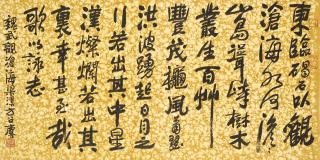 東臨碣石以觀
滄海水何澹
山島聳峙樹木
叢生百艸
豐茂秋風蕭瑟
洪波踴起日月之
行若出其中星
漢燦爛若出其
裏幸甚至哉
歌以詠志
魏武觀滄海